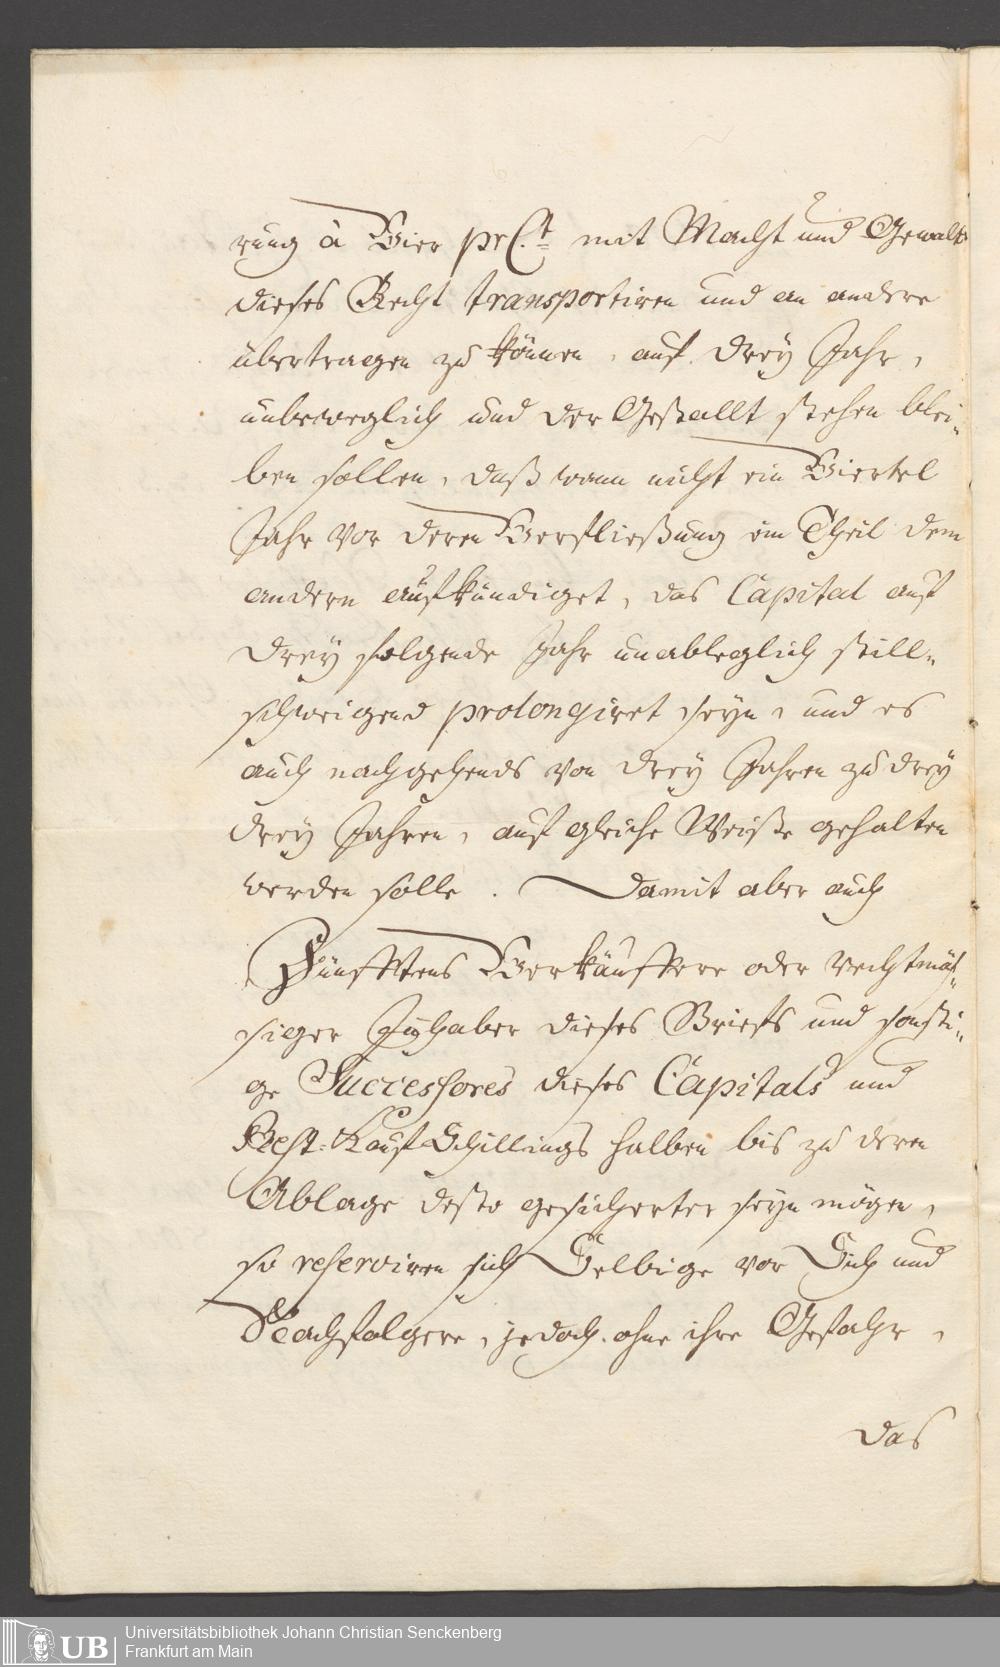 rung à Vier prC.t mit Macht und Gewalt
dieses Recht transportiren und an andere
übertragen zu können, auf drey Jahr,
unbeweglich und der Gestallt stehen blei-
ben sollen, daß wann nicht ein Viertel
Jahr vor deren Verfließung ein Theil dem
andern aufkündiget, das Capital auf
drey folgende Jahr unableglich still-
schweigend prolongiret seyn, und es
auch nachgehends von drey Jahren zu drey
drey Jahren, auf gleiche Weiße gehalten
werden solle. Damit aber auch
Fünfftens Verkäuffere oder rechtmäs-
siger Innhaber dieses Briefs und sonsti-
ge Successores dieses Capitals und
Rest-Kauf-Schillings halben bis zu deren
Ablage desto gesicherter seyn mögen,
so reserviren sich Selbige vor Sich und
Nachfolgere, jedoch ohne ihre Gefahr,
das
Universitätsbibliothek Johann Christian Senckenberg
UB Frankfurt am Main